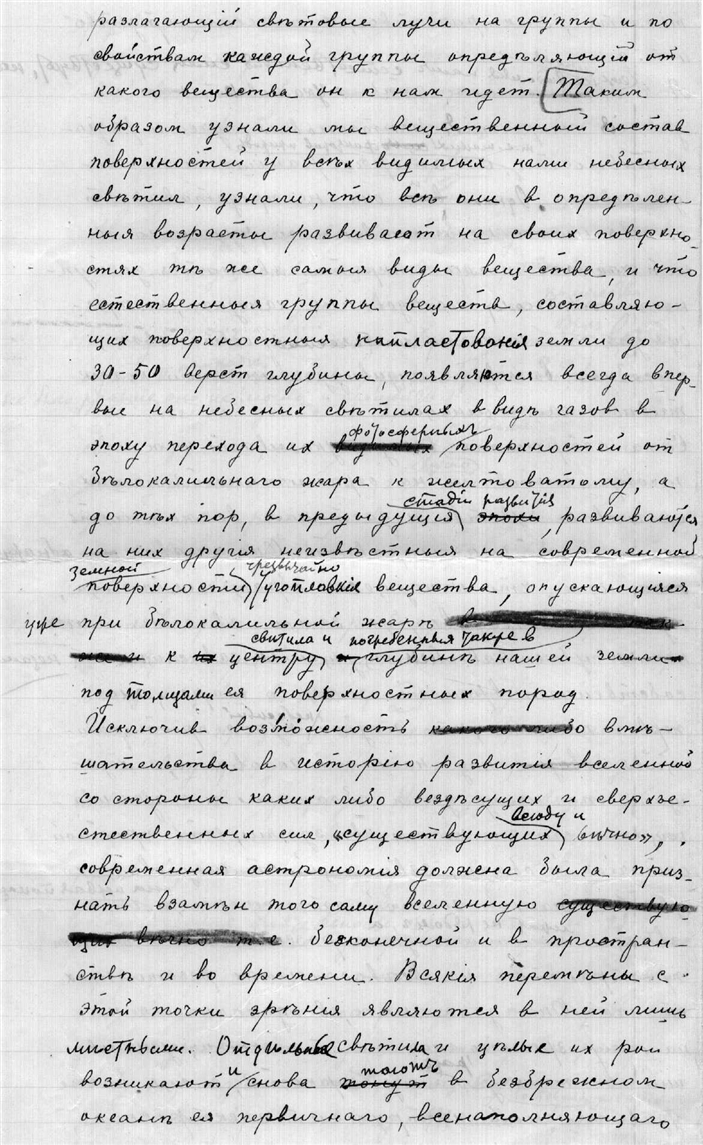 разлагающій свѣтовые лучи на группы и по
свойствам каждой группы опредѣляющій от
какого вещества он к нам идет. Таким
образом узнали мы вещественный состав
поверхностей у всѣх видимых нами небесных
свѣтил, узнали, что всѣ они в опредѣлен-
ныя возрасты развивают на своих поверхно-
стях тѣ же самыя виды вещества, и что
естественныя группы веществ, составляю-
щих поверхностныя напластованія земли до
30-50 верст глубины, появляются всегда впер-
вые на небесных свѣтилах в видѣ газов в
фотосферных
эпоху перехода их поверхностей от
бѣлокалильнаго жара к желтоватому, а
стадіи развитія
до тѣх пор, в предыдущія эпохи, развиваются
на них другія неизвѣстныя на современной
земной чрезвычайно
поверхности уготловкія вещества, опускающіяся
уже при бѣлокалильной жарѣ
свѣтила и погребенныя также в
же и к их центру и глубинѣ нашей земли
под толщами ея поверхностных пород.
Исключив возможность какого либо вмѣ-
шательства в исторію развитія вселенной
со стороны каких либо вездѣсущих и сверхъе-
всюду и
стественных сил, "существующих вѣчно",
современная астрономія должна была приз-
нать взамѣн того саму вселенную существую-
щих вѣчно т.е. безконечной и в простран-
ствѣ и во времени. Всякія перемѣны с
этой точки зрѣнія являются в ней лишь
мѣстными. Отдѣльныя свѣтила и цѣлые их рои
и тонут
возникают снова тонут в безбрежном
океанѣ ея первичнаго, всенаполняющаго